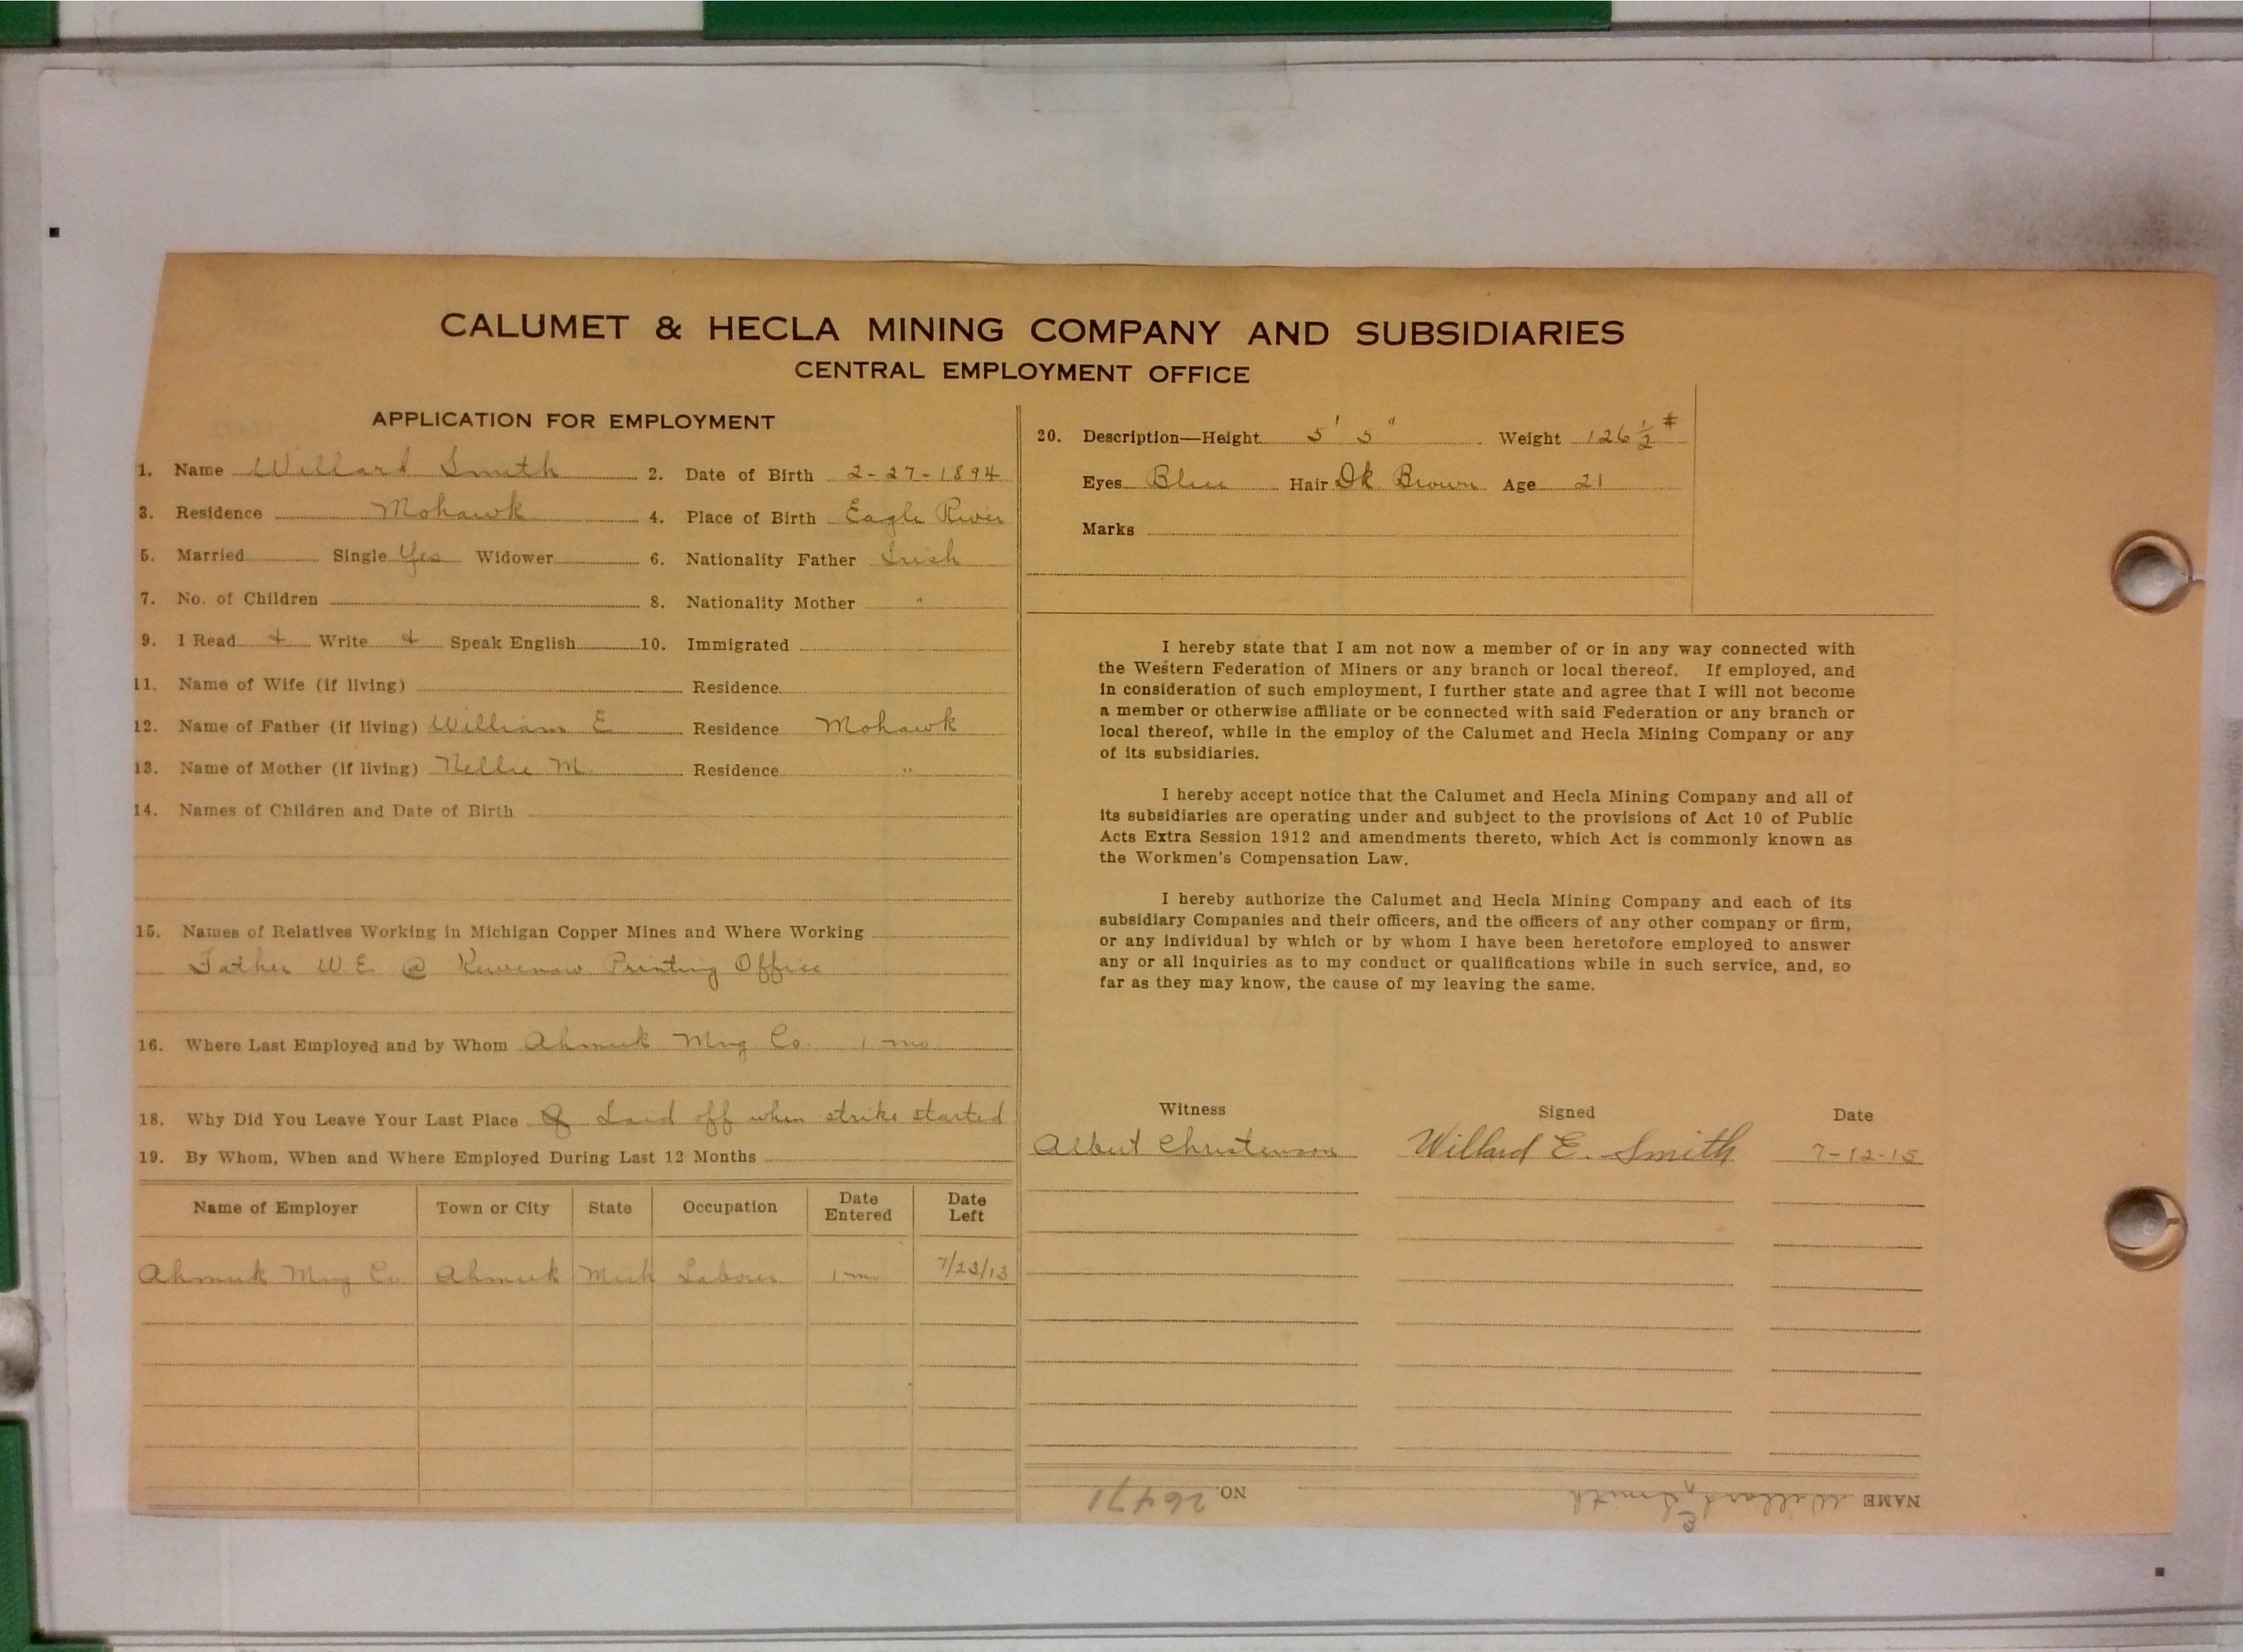 CALUMET & HECLA MINING COMPANY AND SUBSIDIARIES
CENTRAL EMPLOYMENT OFFICE
APPLICATION FOR EMPLOYMENT
1. Name Willard Smith 2. Date of Birth 2-27-1894
3. Residence Mohawk 4. Place of Birth Eagle River
5. Married Single Yes Widower 6. Nationality Father Irish
7. No. of Children 8. Nationality Mother "
9. I Read + Write + Speak English 10. Immigrated
11. Name of Wife (if living) Residence
12. Name of Father (if living) William E Residence Mohawk
13. Name of Mother (if living) Nellie M. Residence "
14. Names of Children and Date of Birth
15. Names of Relatives Working in Michigan Copper Mines and Where Working
Father W.E. @ Kewenaw Printing Office
16. Where Last Employed and by Whom Ahmeek Mng Co. 1 mo
18. Why Did You Leave Your Last Place Laid off when strike started
19. By Whom, When and Where Employed During Last 12 Months
Name of Employer Town or City State Occupation Date Entered Date Left
Ahmeek Mng Co Ahmeek Mich Laborer 1 mo 7/23/13
20. Description—Height 5' 5" Weight 126 1/2 #
Eyes Blue Hair Dk Brown Age 21
Marks
I hereby state that I am not now a member of or in any way connected with
the Western Federation of Miners or any branch or local thereof. If employed, and
in consideration of such employment, I further state and agree that I will not become
a member or otherwise affiliate or be connected with said Federation or any branch or
local thereof, while in the employ of the Calumet and Hecla Mining Company or any
of its subsidiaries.
I hereby accept notice that the Calumet and Hecla Mining Company and all of
its subsidiaries are operating under and subject to the provisions of Act 10 of Public
Acts Extra Session 1912 and amendments thereto, which Act is commonly known as
the Workmen's Compensation Law.
I hereby authorize the Calumet and Hecla Mining Company and each of its
subsidiary Companies and their officers, and the officers of any other company or firm,
or any individual by which or by whom I have been heretofore employed to answer
any or all inquiries as to my conduct or qualifications while in such service, and, so
far as they may know, the cause of my leaving the same.
Witness Signed Date
Albert Christenson Willard E. Smith 7-12-15
NAME Willard E Smith NO. 26471